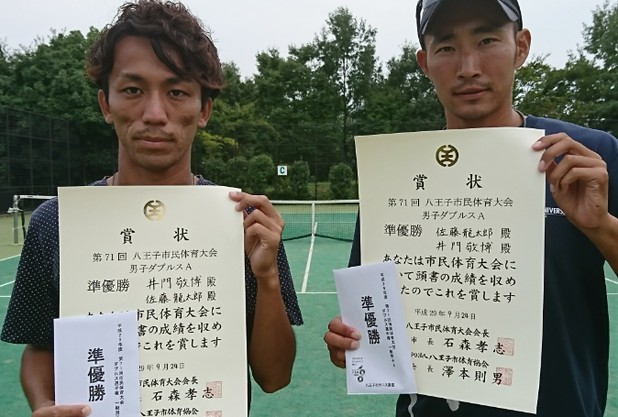 賞状
第71回 八王子市民体育大会
男子ダブルスA
準優勝 井門敬博 殿
佐藤龍太郎 殿
頭書の成績を収め
これを賞します
9月24日
市民体育大会会長
石森孝志
八王子市体育協会
澤本則男
準優勝
賞状
第71回 八王子市民体育大会
男子ダブルスA
準優勝 佐藤龍太郎 殿
井門敬博 殿
あなたは市民体育大会に
いて頭書の成績を収め
たのでこれを賞します
平成29年9月24日
八王子市民体育大会会長
石森孝志
八王子市体育協会
長 澤本則男
準優勝
C